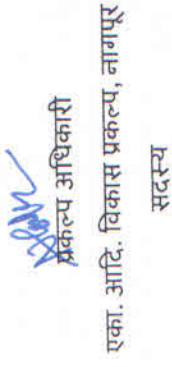 प्रकल्प अधिकारी
एका. आदि. विकास प्रकल्प, नागपूर
सदस्य